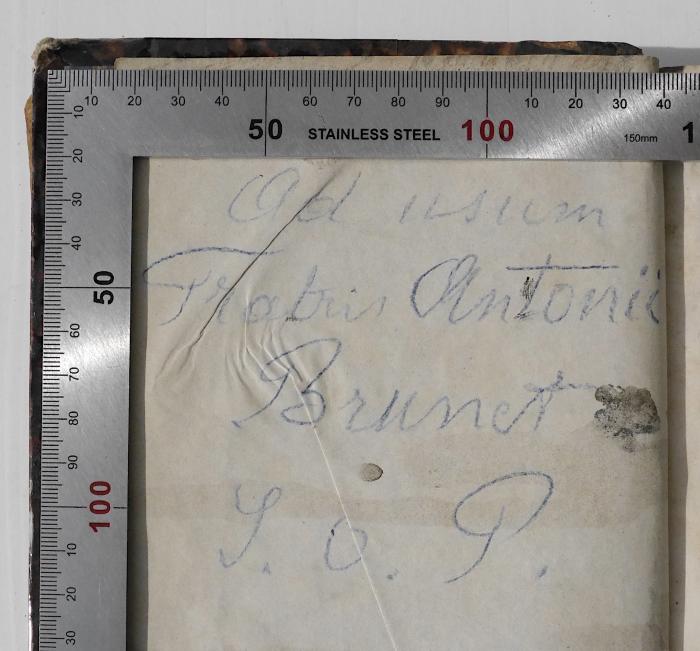 10 20 30 40 50 60 70 80 90 100 10 20 30 40
STAINLESS STEEL
150mm
1
10
20
30
40
50
60
70
80
90
100
10
20
30
Ad usum
Fratris Antonii
Brunet
S. O. P.